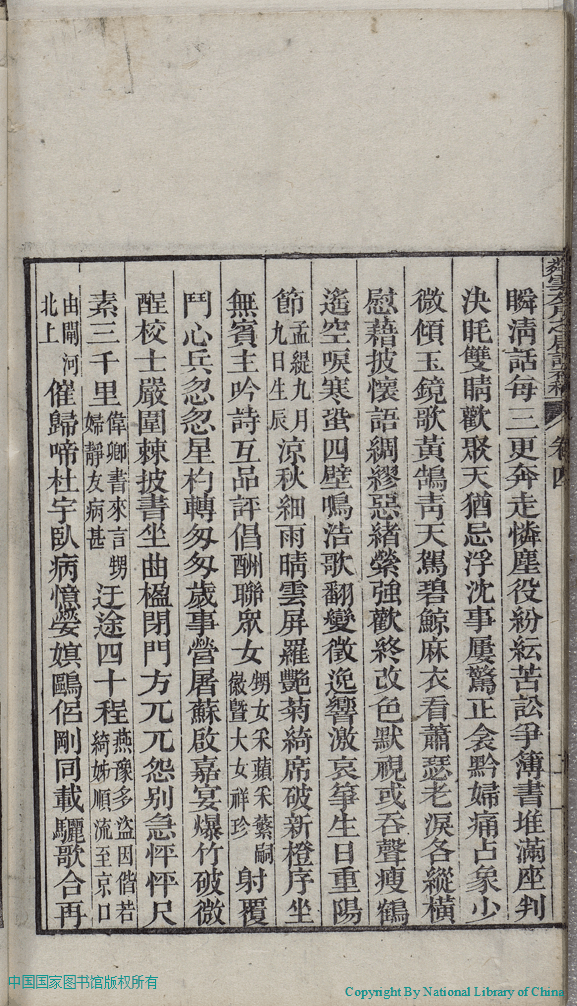 卷四
瞬清話每三更奔走憐塵役紛紜苦訟爭簿書堆滿座判
決眊雙睛歡聚天猶忌浮沈事屢驚正衾黔婦痛占象少
微傾玉鏡歌黃鵠靑天駕碧鯨麻衣看蕭瑟老淚各縱橫
慰藉披懷語綢繆惡緒縈強歡終改色默視或吞聲瘦鶴
遙空唳寒蛩四壁鳴浩歌翻變徵逸響激哀箏生日重陽
節孟緹九月九日生辰涼秋細雨晴雲屏羅艷菊綺席破新橙序坐
無賓主吟詩互品評倡酬聯眾女甥女采蘋采蘩嗣徽曁大女祥珍射覆
鬥心兵忽忽星杓轉匆匆歲事營屠蘇啟嘉宴爆竹破微
酲校士嚴圍棘披書坐曲楹閉門方兀兀怨別急怦怦尺
素三千里偉卿書來言甥婦靜友病甚迂途四十程燕豫多盜因偕若綺姊順流至京口
由閘河北上催歸啼杜宇臥病憶嫈嫇鷗侶剛同載驪歌合再
中国国家图书馆版权所有
Copyright By National Library of China